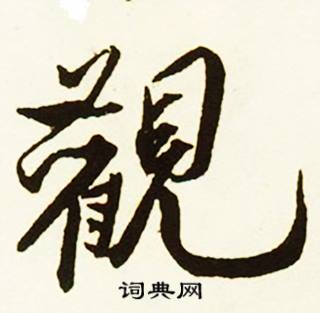 觀
词典网